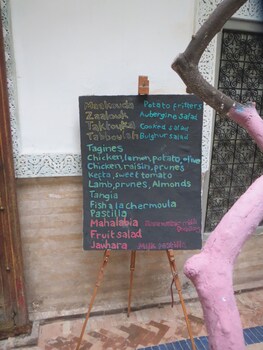 Maakouda Potato fritters
Zaalouk Aubergine Salad
Taktouka Cooked salad
Tabbouleh Bulgur salad
Tagines
Chicken, lemon, potato, olive
Chicken, raisin, prunes
Kefta, sweet tomato
Lamb, prunes, Almonds
Tangia
Fish a la chermoula
Pastilla
Mahalabia
Fruit salad
Jawhara Milk pastilla